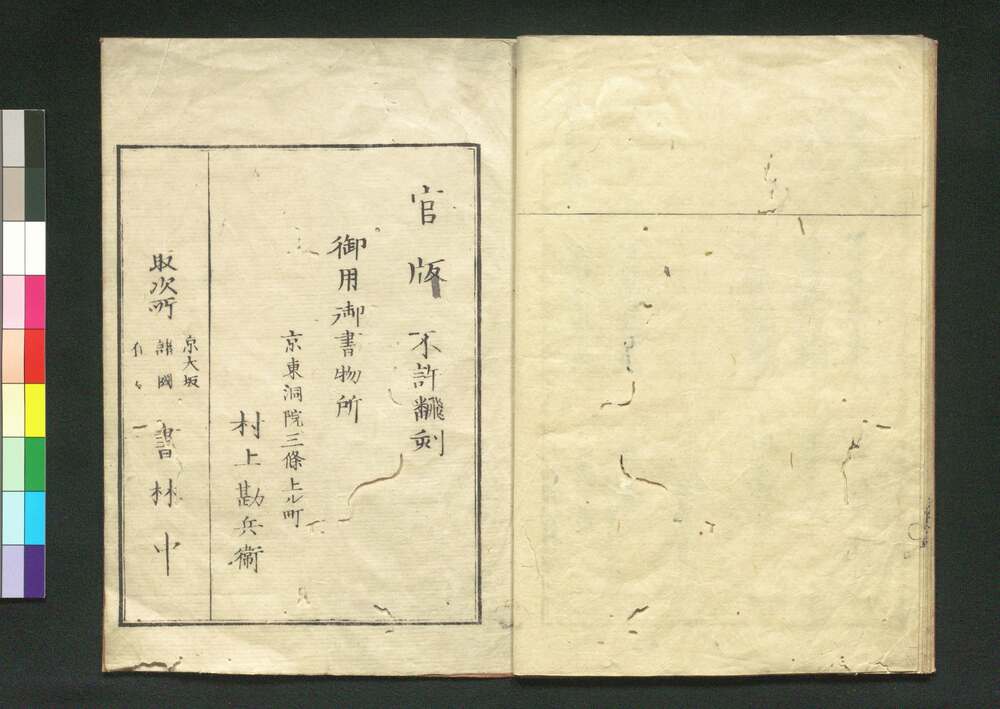 官版 不許飜刻
御用御書物所
京東洞院三條上ル町
村上勘兵衞
取次所
京大坂
諸國
書林中